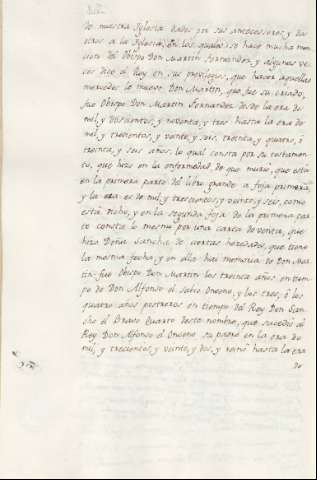 de nuestra Iglesia dados por sus antecesores, y da
otros a la Iglesia, en los quales se hace mucha men
cion del Obispo Don Martin Fernandez, y algunas ve
ces dice el Rey en sus previlegios, que hacia aquellas
mercedes lo mismo Don Martin, que fue su criado,
fue Obispo Don Martin Fernandez desde la era de
mil, y doscientos, y noventa, y tres hasta la era de
mil, y trecientos, y veinte, y seis, treinta, y quatro, ó
treinta, y seis años, lo qual consta por su testamen
to, que hizo en la enfermedad, de que murio, que está
en la primera parte del libro grande a foja primera,
y la era es de mil, y trecientos, y veinte, y seis, como
está dicho, y en la segunda foja de la primera par
te consta lo mesmo por una carta de venta, que
hizo Doña Sancha de ciertas heredades, que tiene
la mesma fecha, y en ella hai memoria de Don Mar
tin: fue Obispo Don Martin los treinta años en tiem
po de Don Alfonso el Sabio Onceno, y los tres, ó los
quatro años postreros en tiempo del Rey Don San
cho el Bravo Quarto deste nombre, que sucedió al
Rey Don Alfonso el Onceno su padre en la era de
mil, y trecientos, y veinte, y dos, y reinó hasta la era
de